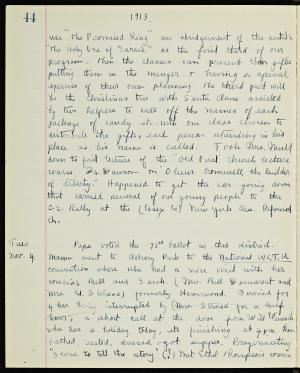 44
1913.
use "The Promised King" an abridgement of the cantata
"The Holy One of Israel" as the first third of our
program. Then the classes can present their gifts
putting them in the manger & having a special
exercise of their own planning. The third part will
be the Christmas tree with Santa Claus assisted
by two helpers to call off the names of each
package of candy etc. with one class chosen to
distribute the gifts, each person standing in his
place as his name is called. Took Mrs.
down to first lecture of the "Old First Church lecture
course. Dawson on "Oliver Cromwell, the builder
of liberty." Happened to get the car going down
that carried several of our young people to the
C.E. Rally at the New York Ave. Reformed
Ch.
Tues.
Nov. 4.
Papa voted the 73rd ballot in this district.
Mamma went to Asbury Park to the National W.C.T.U.
convention where she had a nice visit with her
cousins Bell and Sarah. (Mrs. Bell Demarest and
Mrs. formerly Hammond. I ironed for
4 hrs. being interrupted by (Mrs. for a half
hour, & a short call at the door from Will
who has a holiday today, etc. finishing at 4 p.m. then
bathed, rested, dressed & got supper. Prayermeeting
"I love to tell the story" (?) Met Ethel Thompson's cousin